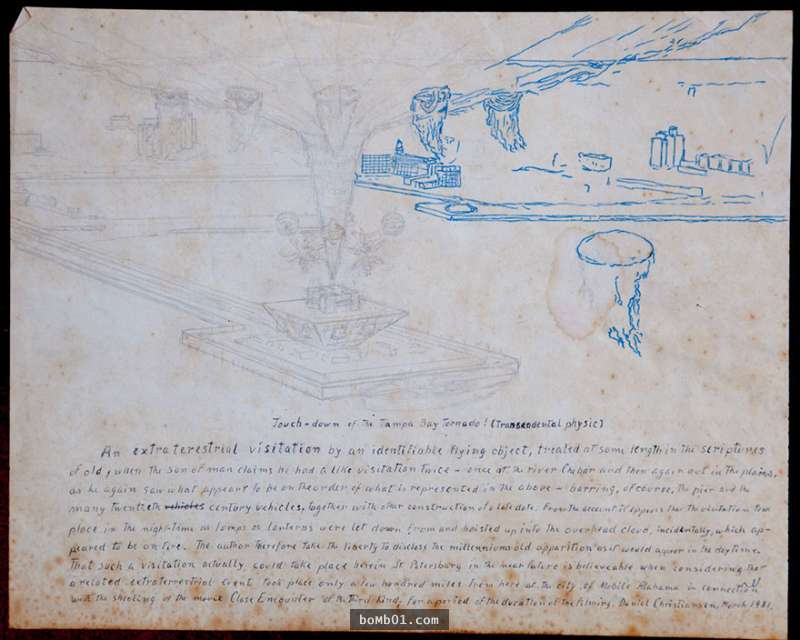 Touch-down of the Tampa Bay Tornado! (Transendental physic)
An extraterestrial visitation by an identifiable flying object, treated at some length in the scriptures
of old, when the son of man claims he had a like visitation twice - once at the river Chebar and then again out in the plains,
as he again saw what appeart to be on the order of what is represented in the above - barring, of course, the pier and the
many twentieth vehicles century vehicles, together with other construction of a late date. From the account it appears that the visitation took
place in the night-time as lamps or lanterns were let down from and hoisted up into the overhead cloud, incidentally, which ap-
peared to be on fire. The author therefore take the liberty to disclose the millenniums old apparition as it would appear in the daytime.
That such a visitation actually could take place here in St Petersburg in the near future is believeable when considering that
a related extraterrestrial event took place only a few hundred miles from here at the city of Mobile Alabama in connection
with the shooting of the movie Close Encounter of the Third Kind, for a period of the duration of the filming. Daniel Christiansen, March 1981.
boMb01.com